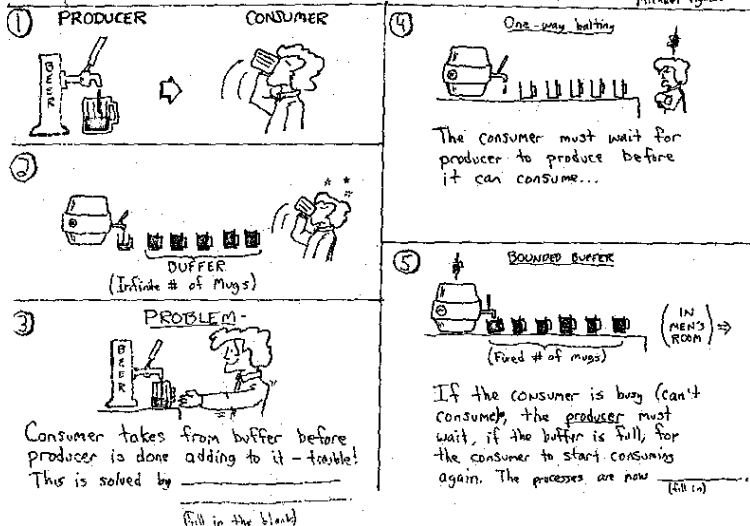 ①
PRODUCER
CONSUMER
BEER
②
BUFFER
(Infinite # of Mugs)
③
PROBLEM -
BEER
Consumer takes from buffer before
producer is done adding to it - trouble!
This is solved by
(fill in the blank)
④
One-way waiting
The consumer must wait for
producer to produce before
it can consume...
⑤
BOUNDED BUFFER
(Fixed # of mugs)
(IN
MEN'S
ROOM)
If the consumer is busy (can't
consume), the producer must
wait, if the buffer is full, for
the consumer to start consuming
again. The processes are now
(fill in)